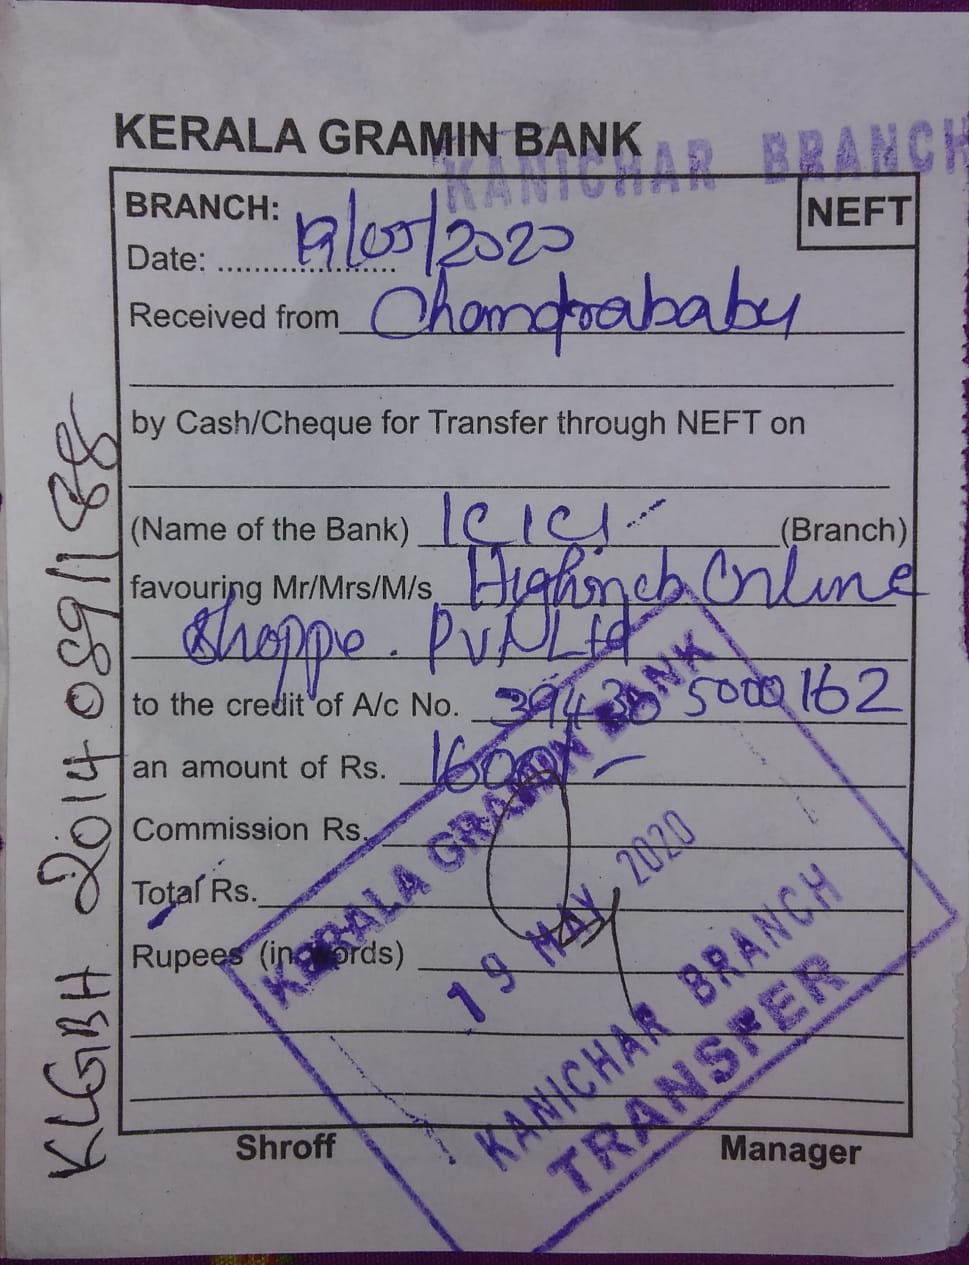 KERALA GRAMIN BANK
KANICHAR BRANCH
BRANCH:
NEFT
Date: 19/05/2020
Received from Chandrababy
by Cash/Cheque for Transfer through NEFT on
(Name of the Bank) ICICI (Branch)
favouring Mr/Mrs/M/s Highrich Online
Shoppe. Pvt Ltd
to the credit of A/c No. 394305000162
an amount of Rs. 1600/-
Commission Rs.
Total Rs.
Rupees (in words)
Shroff Manager
KERALA GRAMIN BANK
19 MAY 2020
KANICHAR BRANCH
TRANSFER
KLGBH 2014 089/188